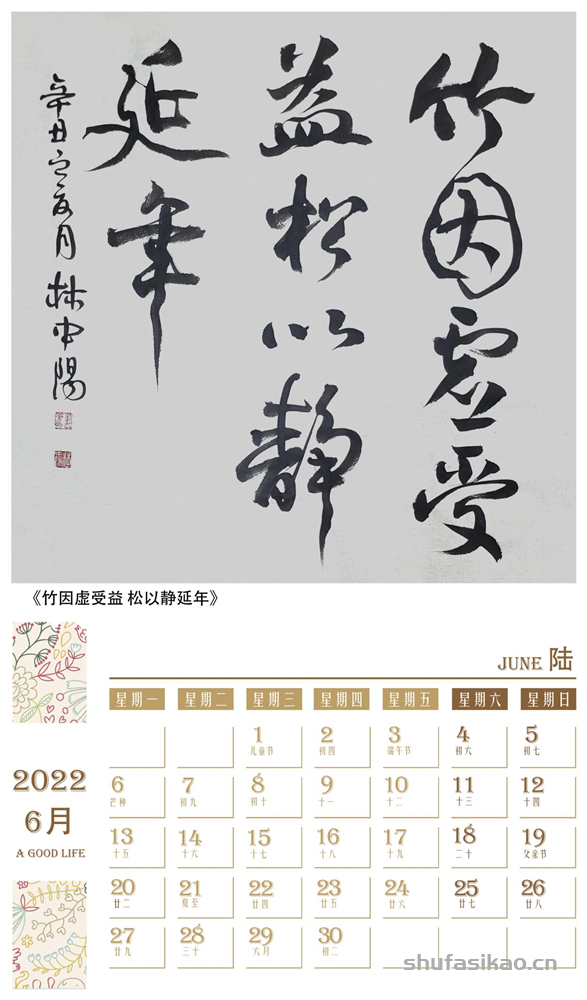 竹因虚受
益松以静
延年
辛丑之夏月 林中陽
《竹因虚受益 松以静延年》
JUNE 陆
星期一 星期二 星期三 星期四 星期五 星期六 星期日
1 2 3 4 5
儿童节 初四 端午节 初六 初七
6 7 8 9 10 11 12
芒种 初九 初十 十一 十二 十三 十四
13 14 15 16 17 18 19
十五 十六 十七 十八 十九 二十 父亲节
20 21 22 23 24 25 26
廿二 夏至 廿四 廿五 廿六 廿七 廿八
27 28 29 30
廿九 三十 六月 初二
2022
6月
A GOOD LIFE
shufasikao.cn